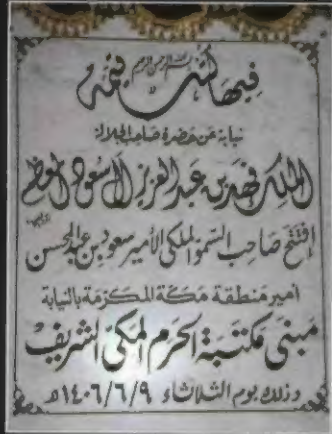 بسم الله الرحمن الرحيم
فيها كتب قيمة
نيابة عن حضرة صاحب الجلالة
الملك فهد بن عبد العزيز آل سعود المعظم
افتتح صاحب السمو الملكي الأمير سعود بن عبد المحسن
امير منطقة مكة المكرمة بالنيابة
مبنى مكتبة الحرم المكي الشريف
وذلك يوم الثلاثاء ١٤٠٦/٦/٩هـ